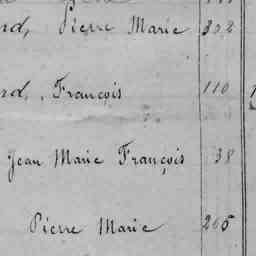 rd, Pierre Marie 302
rd, François 110
Jean Marie François 38
Pierre Marie 265